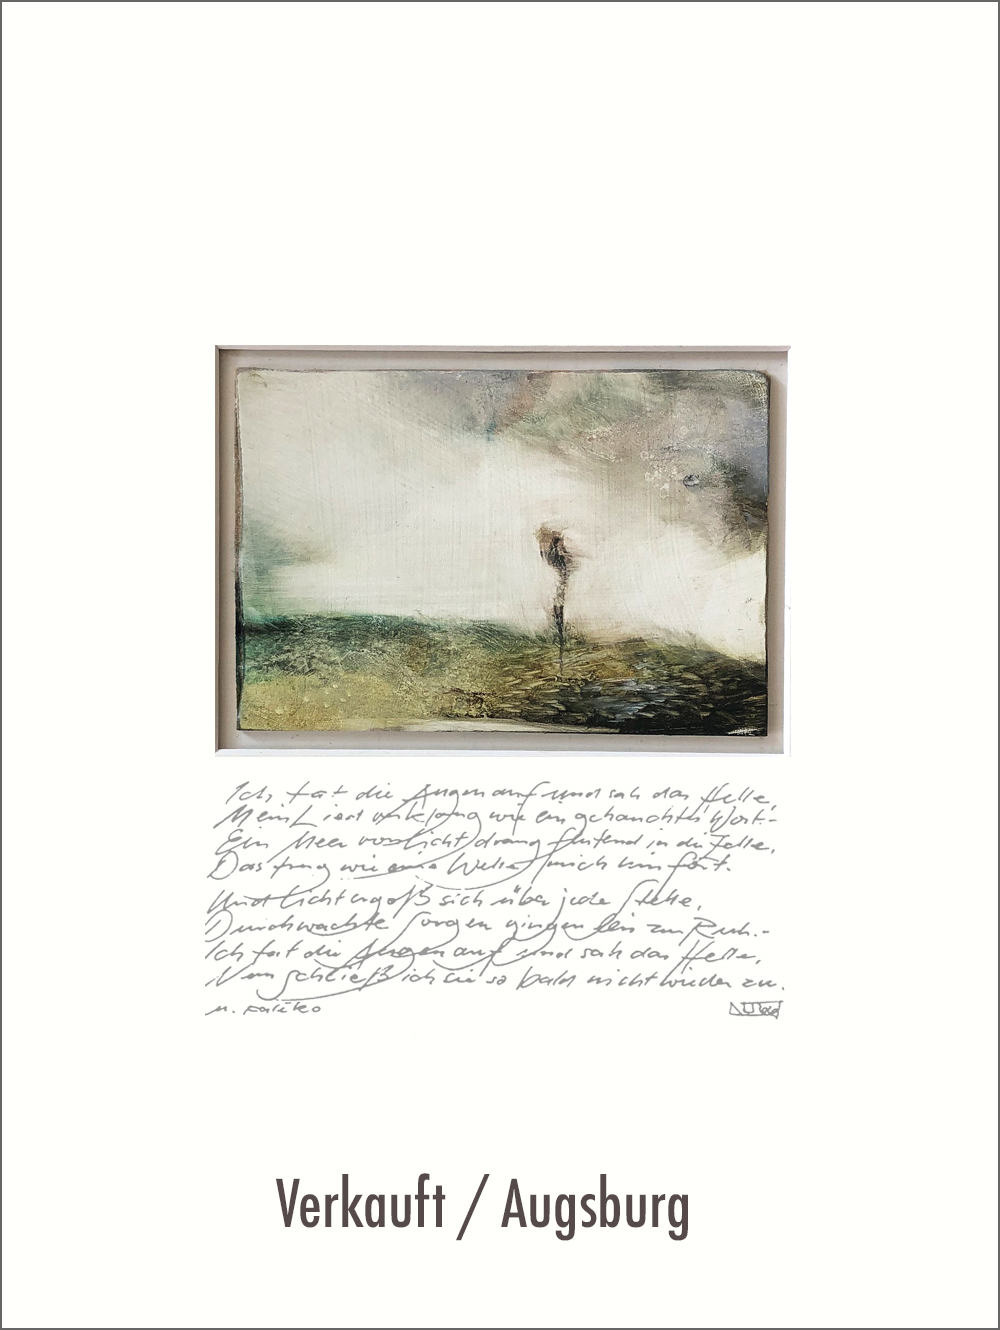 Ich tat die Augen auf und sah das Helle,
Mein Leid verklang wie ein gehauchtes Wort.-
Ein Meer von Licht drang flutend in die Zelle,
Das trug wie eine Welle mich hin fort.
Und Licht ergoß sich über jede Stelle,
Durchwachte Sorgen gingen leis zur Ruh.-
Ich tat die Augen auf und sah das Helle,
Nun schließ ich sie so bald nicht wieder zu.
M. Kaléko
Verkauft / Augsburg